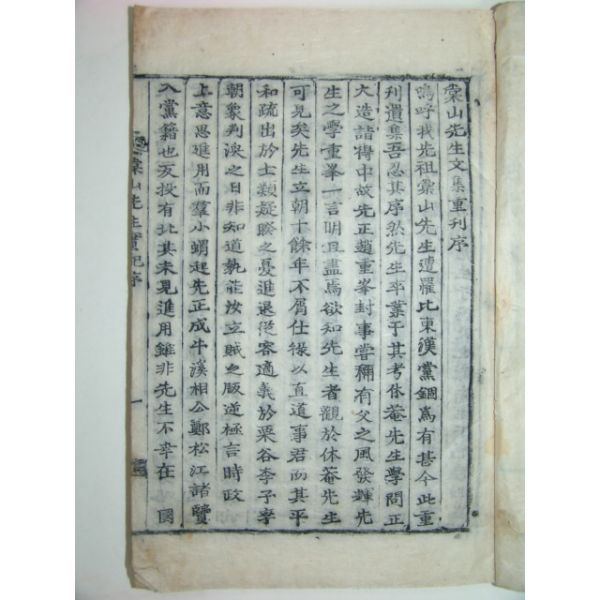 棠山先生文集重刊序
嗚呼我先祖棠山先生遭罹比東漢黨錮爲有甚今此重
刊遺集吾忍其序然先生卒業于其考休菴先生學問正
大造諸得中故先正趙重峯封事嘗稱有父之風發輝先
生之學重峯一言明且盡焉欲知先生者觀於休菴先生
可見矣先生立朝十餘年不屑仕祿以直道事君而其平
和疏出於士類疑睽之憂進退從容適義於栗谷李子
朝象判渙之日非知道孰能汝立賊之叛逆極言時政
上意思進用而羣小蝟起先正成牛溪相公鄭松江諸賢
入黨籍也友投有北其未見進用雖非先生不幸在 國
棠山先生實記序
一